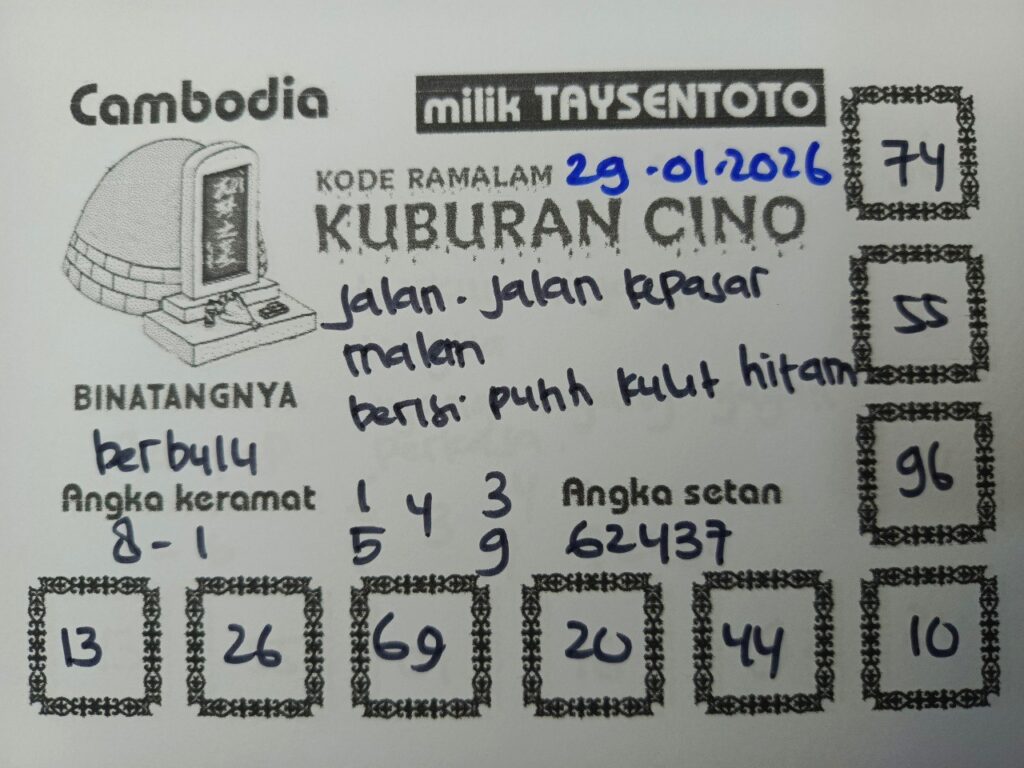 Cambodia
milik TAYSENTOTO
KODE RAMALAM 29.01.2026
KUBURAN CINO
jalan. jalan kepasar
malam
berisi putih kulut hitam
BINATANGNYA
berbulu
Angka keramat
8-1
1 4 3
5 9
Angka setan
62437
74
55
96
13 26 69 20 44 10